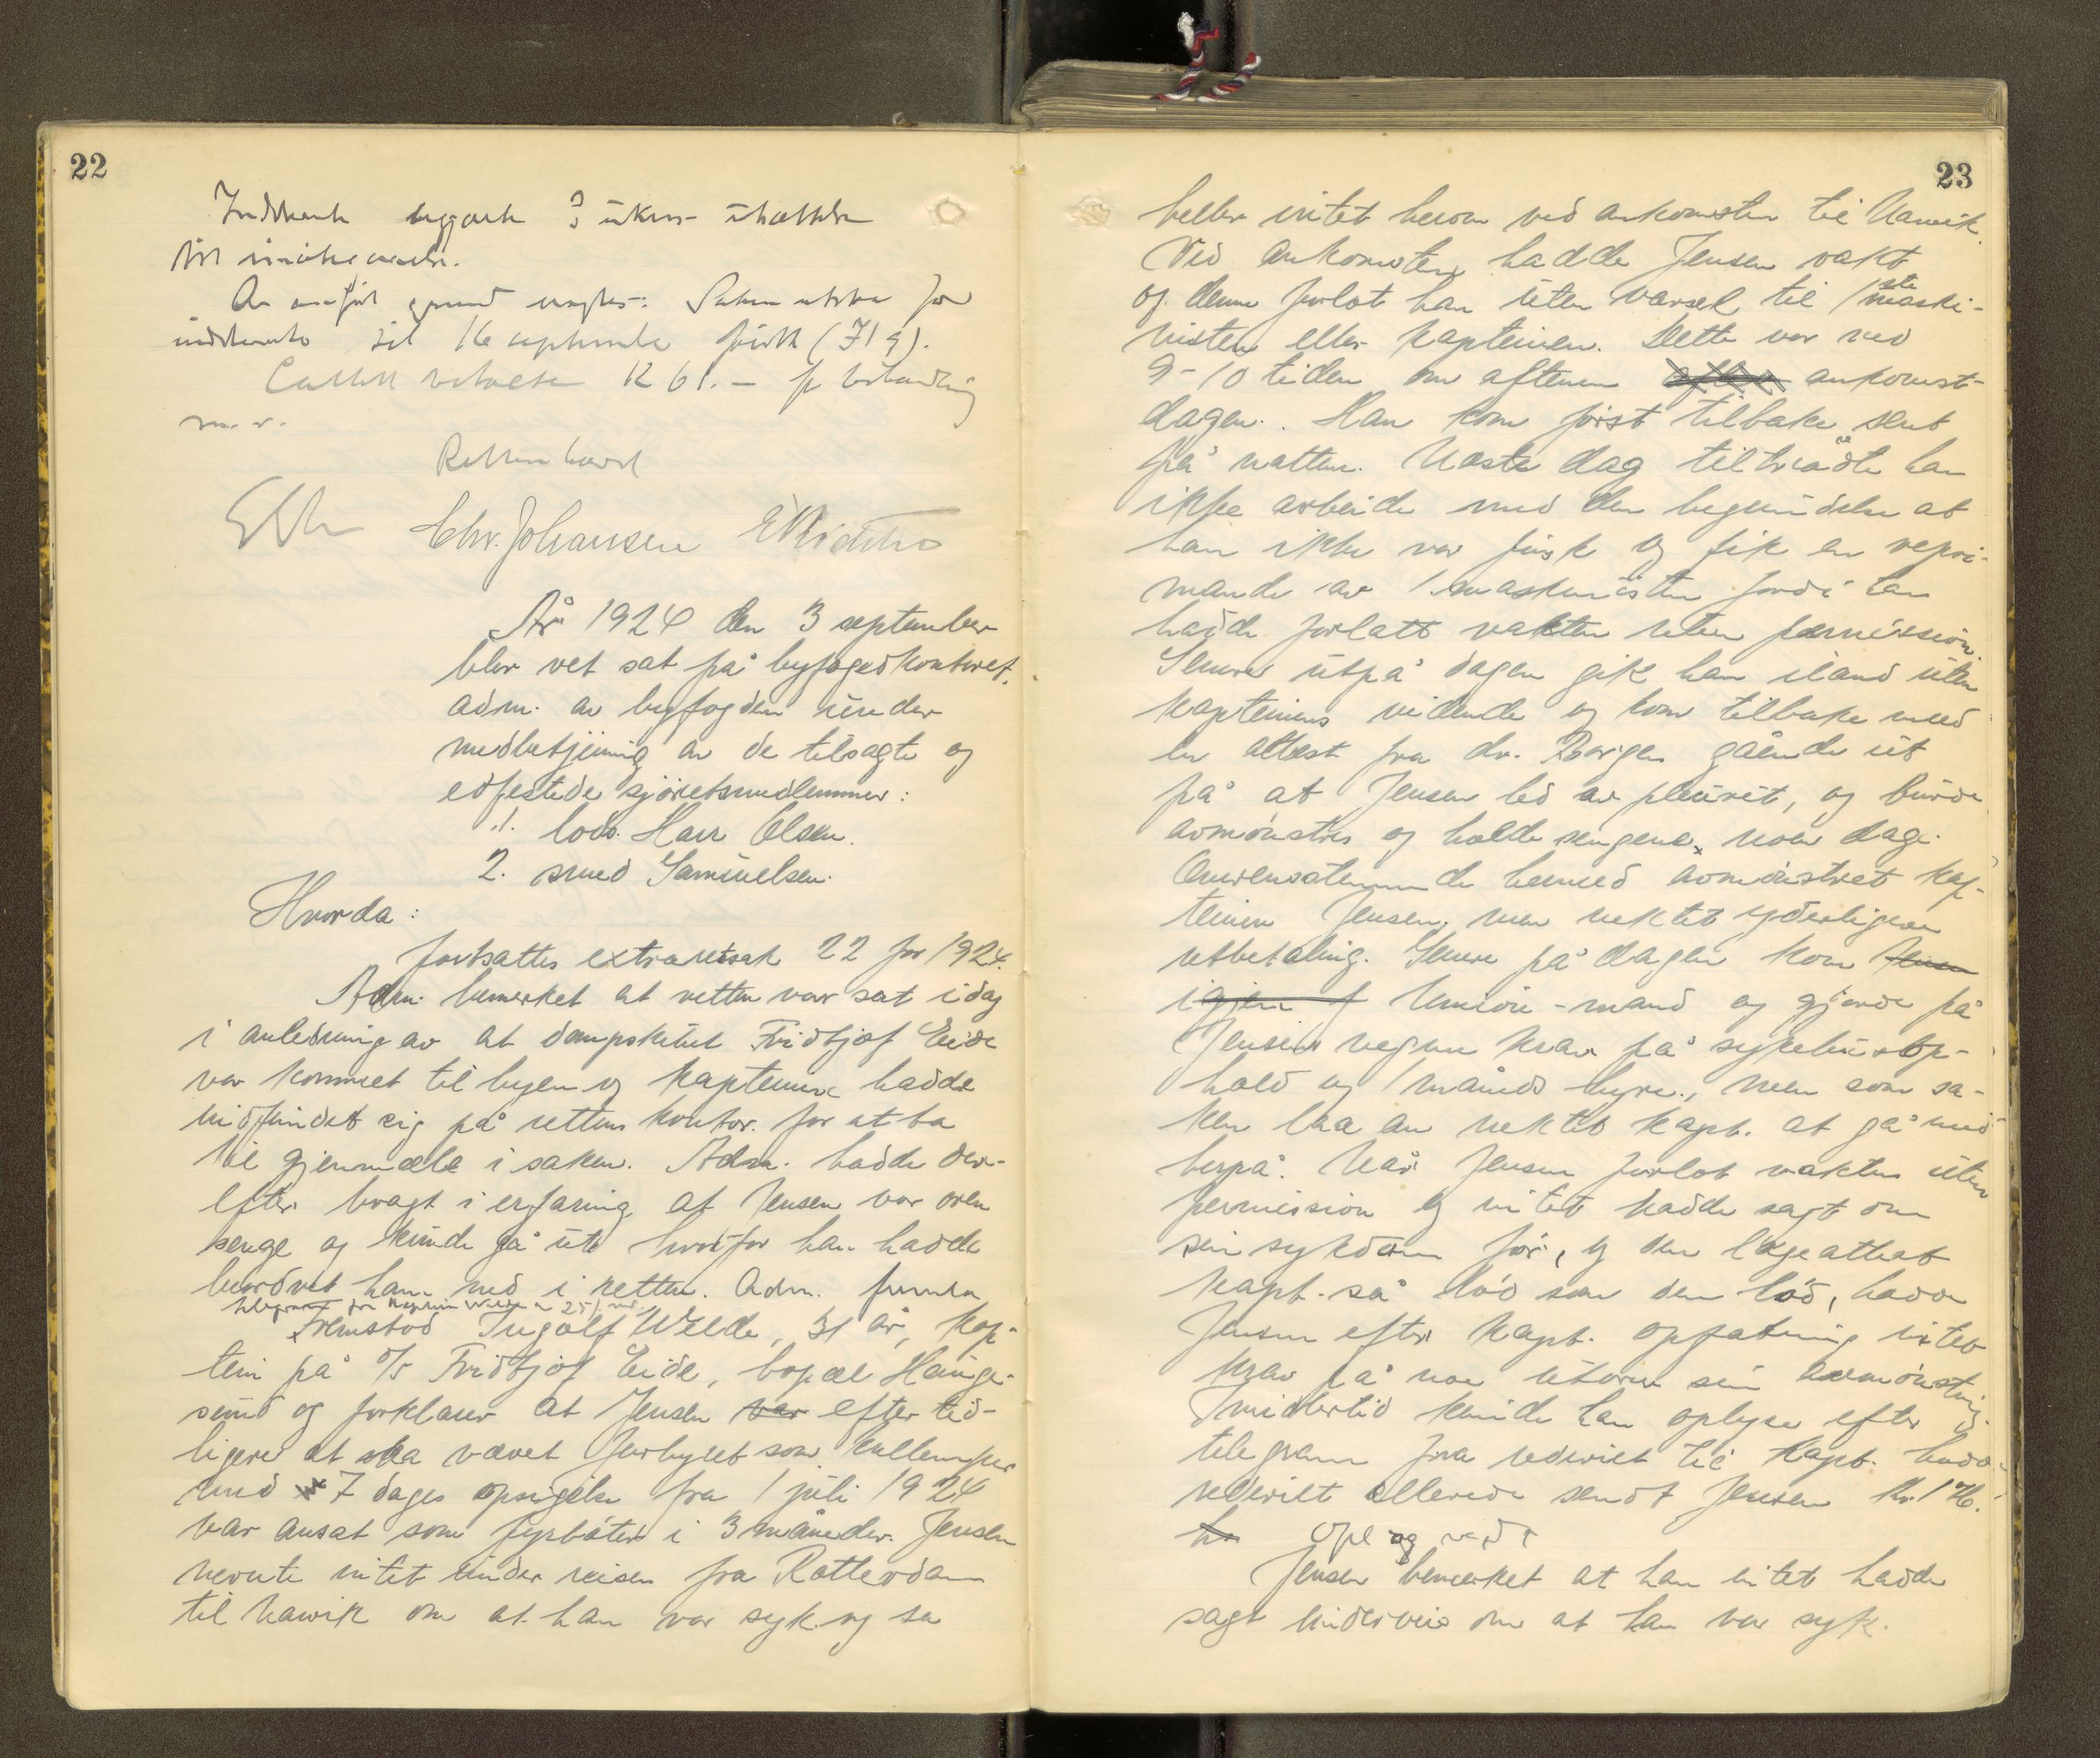 22
Indstevnte begjærte 3 ukers utsættelse
til imøtegaaelse.
Av anført grund Saken utsættes for
indstevnte til 16 september førstk (7 1/4).
K 61.- for behandling
m. v.
Retten hævet
Chr. Johansen
År 1924 den 3 september
blev ret sat på byfogedkontoret.
adm. av byfogden under
medbetjening av de tilsagte og
edfestede sjøretsmedlemmer:
1. lods. Olsen.
2. smed Samuelsen.
Hvorda:
fortsattes extraretsak 22 for 1924.
Adm. bemerket at retten var sat idag
i anledning av at dampskibet Fridtjof Eide
var kommet til byen og kapteinen hadde
indfundet sig på rettens kontor for at ta
til gjenmæle i saken. Adm. hadde der-
efter bragt i erfaring at Jensen var oven
senge og kunde gå ute hvorfor han hadde
beordret ham ned i retten. Adm. fremla
telegram fra kaptein Welde av 25/ md.
Fremstod Ingolf Welde, 31 år, kap-
tein på D/S Fridtjof Eide, bopæl Hauge-
sund og forklarer at Jensen var efter tid-
ligere at ha været forhyret som kullemper
med 7 dages opsigelse fra 1 juli 1924
var ansat som fyrbøter i 3 måneder. Jensen
nevnte intet under reisen fra Rotterdam
til Narvik om at han var syk og sa
23
heller intet herom ved ankomsten til Narvik.
Ved ankomsten hadde Jensen vakt
og denne forlot han uten varsel til 1ste maski-
nisten eller kapteinen. Dette var ved
9-10 tiden om aftenen ankomst-
dagen. Han kom først tilbake sent
på natten. Næste dag tiltrådte han
ikke arbeide med den begrundelse at
han ikke var frisk og fik en repri-
mande av 1. maskinisten fordi han
hadde forlatt vakten uten permission.
Senere utpå dagen gik han iland uten
kapteinens vidende og kom tilbake med
en attest fra dr. Borgen gående ut
på at Jensen led av pleurit, og burde
avmønstres og holde sengen noen dage.
Overensstemmende hermed avmønstret kap-
teinen Jensen, men nektet yderligere
utbetaling. Senere på dagen kom Jensen
igjen f Union-mand og gjorde på
Jensens vegne krav på sykehusop-
hold og 1 måneds hyre, men som sa-
ken laa an nektet kapt. at gå med
herpå. Når Jensen forlot vakten uten
permission og intet hadde sagt om
sin sykdom før, og den lægeattest
kapt. så lød som den lød, hadde
Jensen efter kapt. opfatning intet
krav på noe utover sin avmønstring.
Imidlertid kunde han oplyse efter
telegram fra rederiet til kapt. hadde
rederiet allerede sendt Jensen kr. 176.
ha Opl og vedt
Jensen bemerket at han intet hadde
sagt underveis om at han var syk.